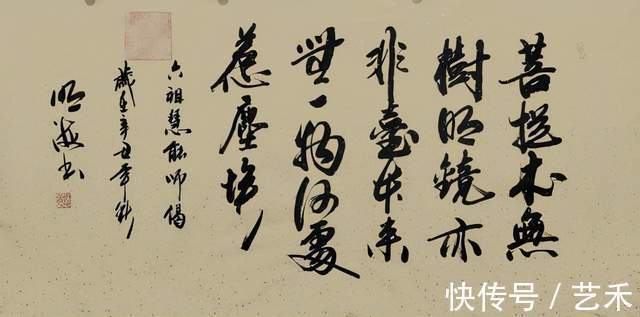 菩提本無
樹明鏡亦
非臺本來
無一物何處
惹塵埃
六祖慧能師偈
歲在辛丑年秋
明海书
快传号 / 艺禾